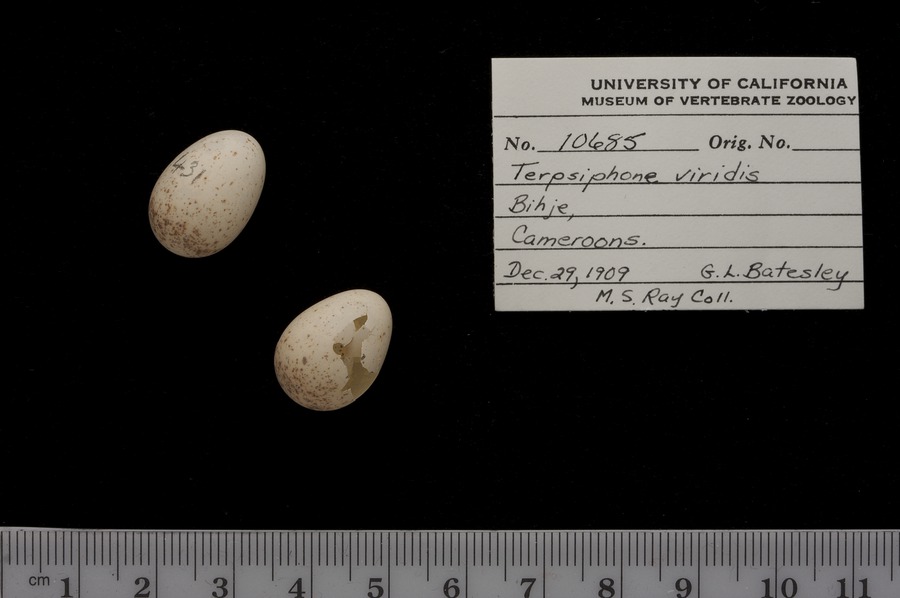 UNIVERSITY OF CALIFORNIA
MUSEUM OF VERTEBRATE ZOOLOGY
No. 10685 Orig. No.
Terpsiphone viridis
Bihje,
Cameroons.
Dec. 29, 1909 G. L. Batesley
M. S. Ray Coll.
431
cm 1 2 3 4 5 6 7 8 9 10 11